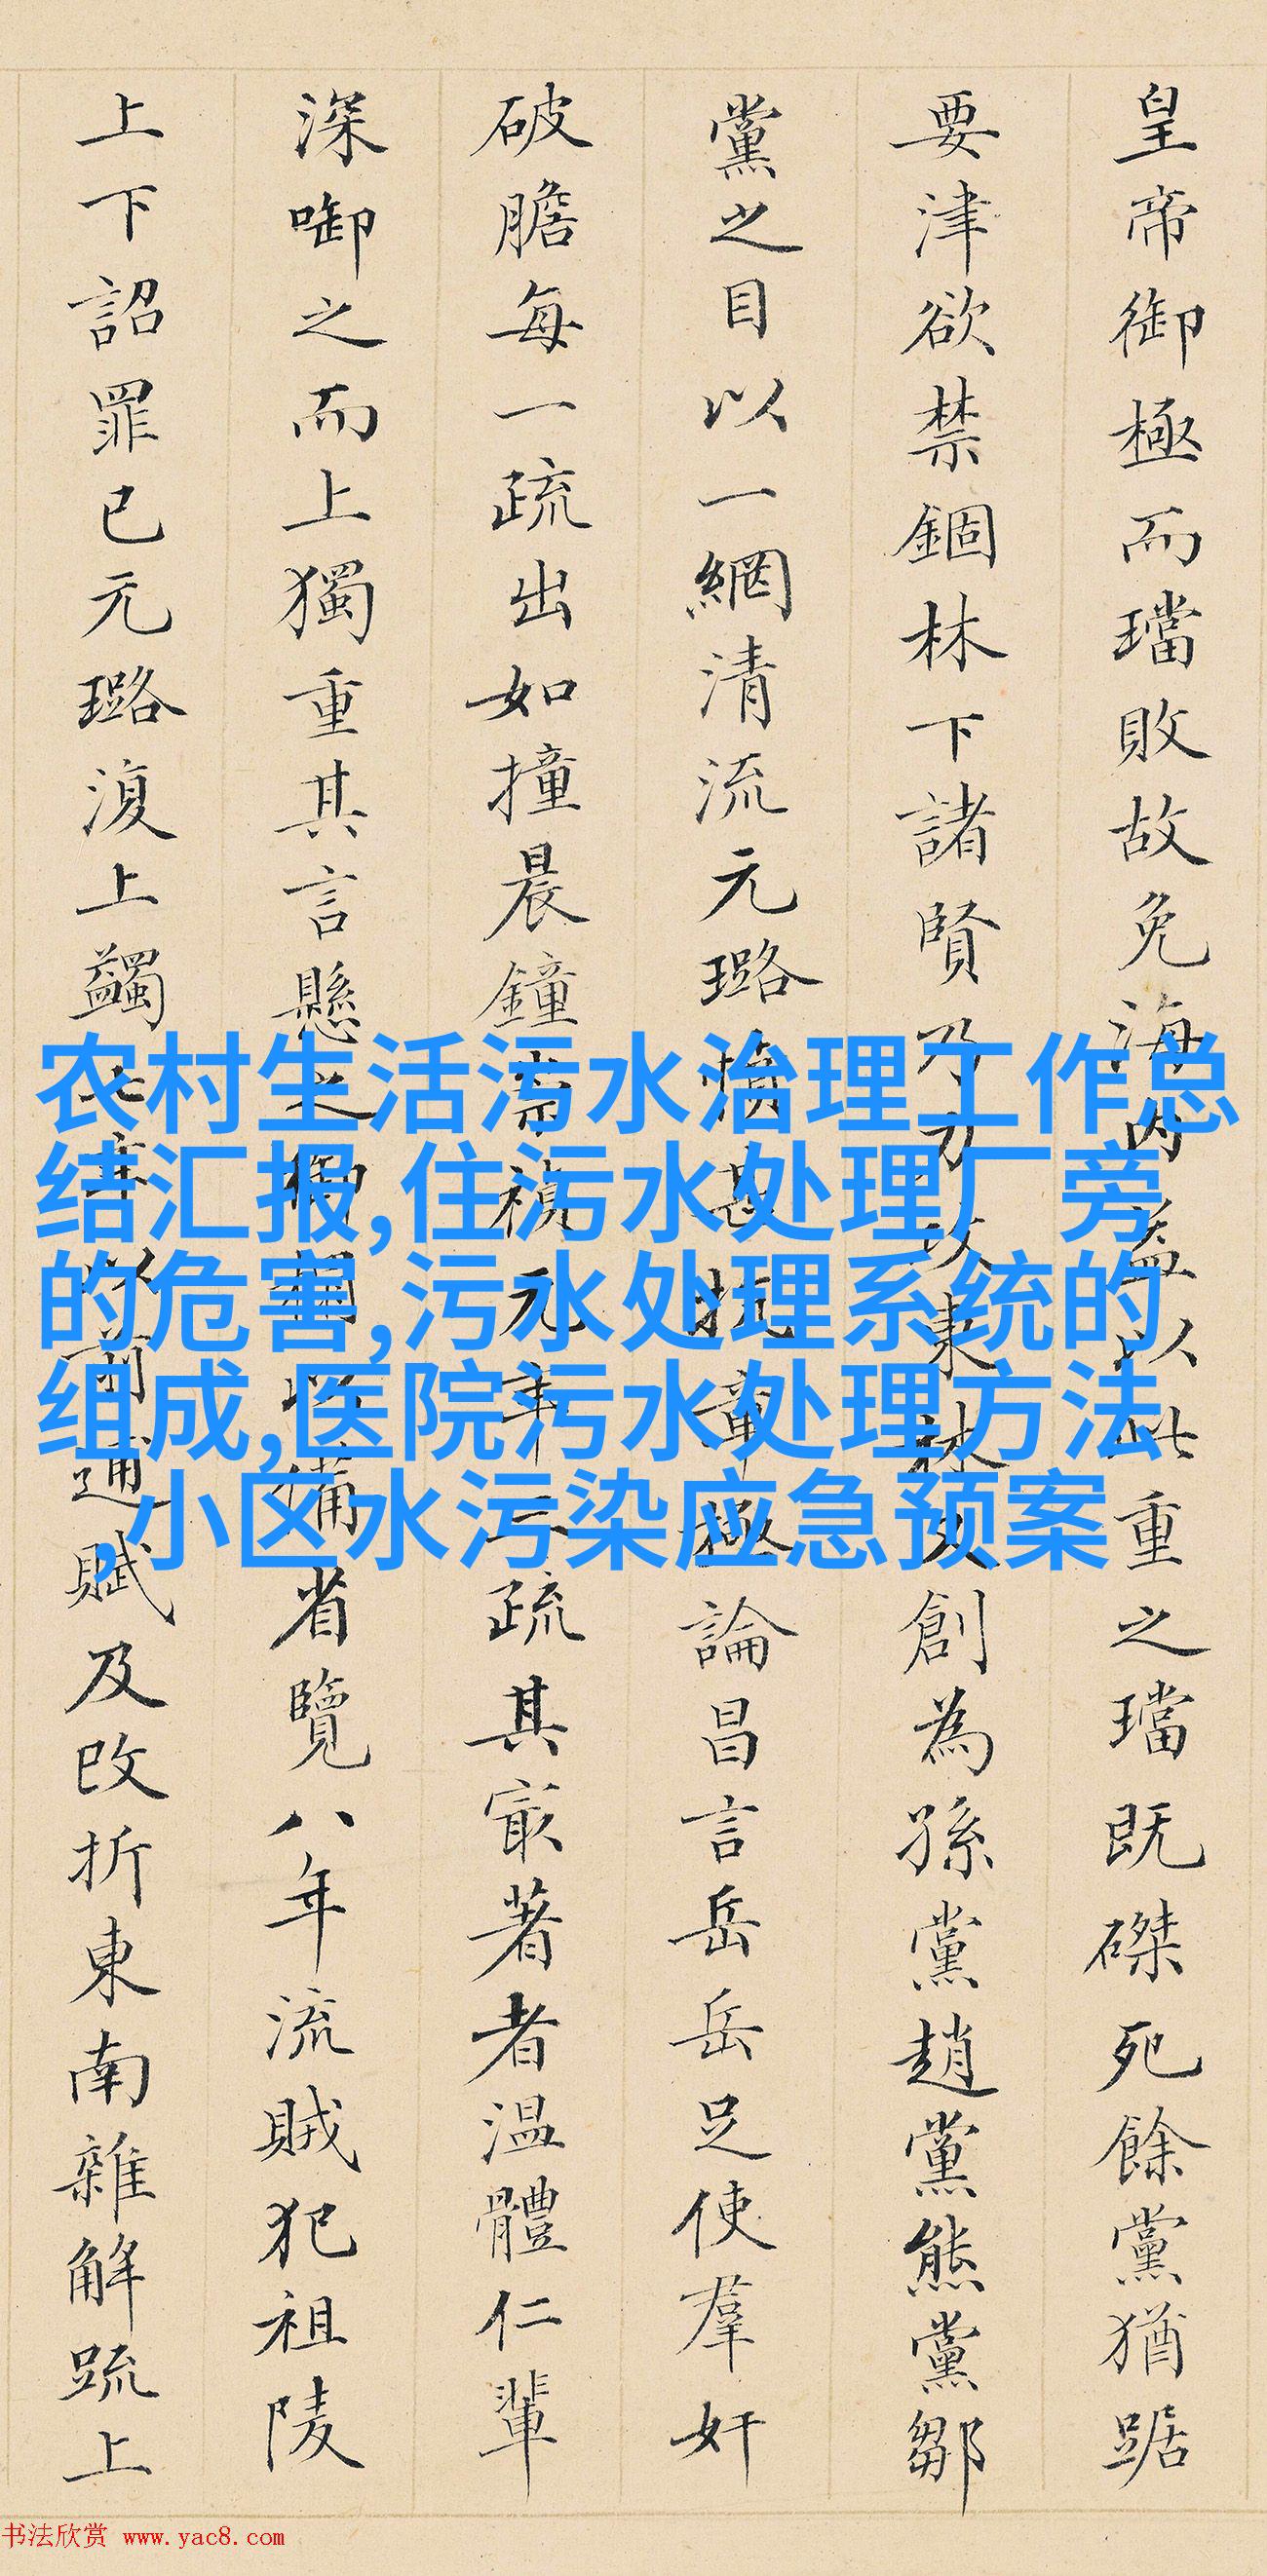 皇帝御極而璫敗故免海內益以此重之璫既磔死餘黨猶踞
要津欲禁錮林下諸賢乃力攻東林又創為孫黨趙黨熊黨鄒
黨之目以一網清流元璐憤甚抗章極論昌言岳岳足使羣奸
破膽每一疏出如撞晨鐘崇禎元年疏其㝡著者溫體仁輩
深啣之而上獨重其言懸之御以備省覽八年流賊犯祖陵
上下詔罪已元璐復上蠲七年以前逋賦及改折東南雜解疏上
农村生活污水治理工作总
结汇报,住污水处理厂旁
的危害,污水处理系统的
组成,医院污水处理方法
,小区水污染应急预案
书法欣赏 www.yac8.com